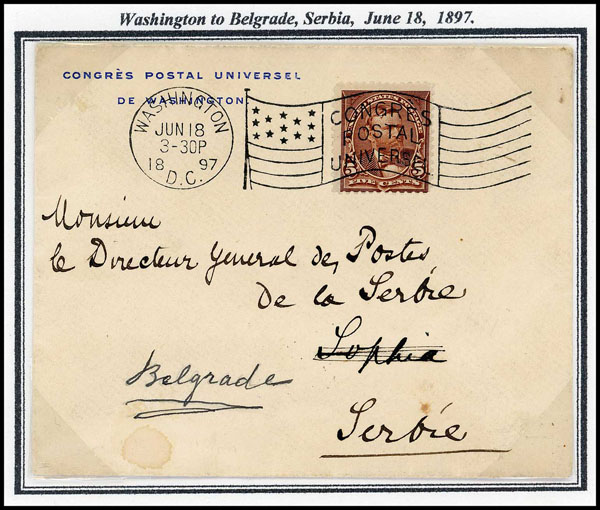 Washington to Belgrade, Serbia, June 18, 1897.
CONGRÈS POSTAL UNIVERSEL
DE WASHINGTON.
WASHINGTON
JUN 18
3-30P
18 97
D.C.
CONGRES
POSTAL
UNIVERSAL
FIVE CENTS
Monsieur
le Directeur General des Postes
De la Serbie
Sophia
Belgrade
Serbie